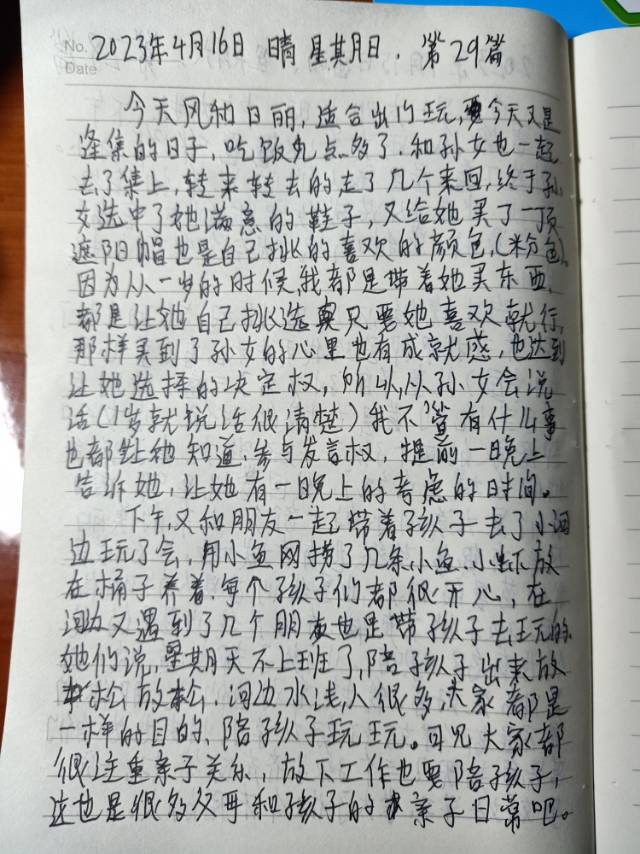 No. 2023年4月16日 晴 星期日. 第29篇
Date
今天风和日丽,适合出门玩,今天又是
逢集的日子,吃饭九点多了.和孙女也一起
去了集上,转来转去的走了几个来回,终于孙
女选中了她满意的鞋子,又给她买了一顶
遮阳帽也是自己挑的喜欢的颜色,(粉色)
因为从一岁的时候我都是带着她买东西,
都是让她自己挑选只要她喜欢就行,
那样买到了孙女的心里也有成就感,也达到
让她选择的决定权,所以,从孙女会说
话(1岁就说话很清楚)我不管有什么事
也都让她知道,参与发言权,提前一晚上
告诉她,让她有一晚上的考虑的时间。
下午,又和朋友一起带着孩子去了小河
边玩了会,用小鱼网捞了几条小鱼.小虾放
在桶子养着.每个孩子们都很开心,在
河边又遇到了几个朋友也是带孩子去玩的.
她们说,星期天不上班了,陪孩子出来放
松放松.河边水浅,人很多,大家都是
一样的目的、陪孩子玩玩。可见大家都
很注重亲子关系,放下工作也要陪孩子,
这也是很多父母和孩子的亲子日常吧。